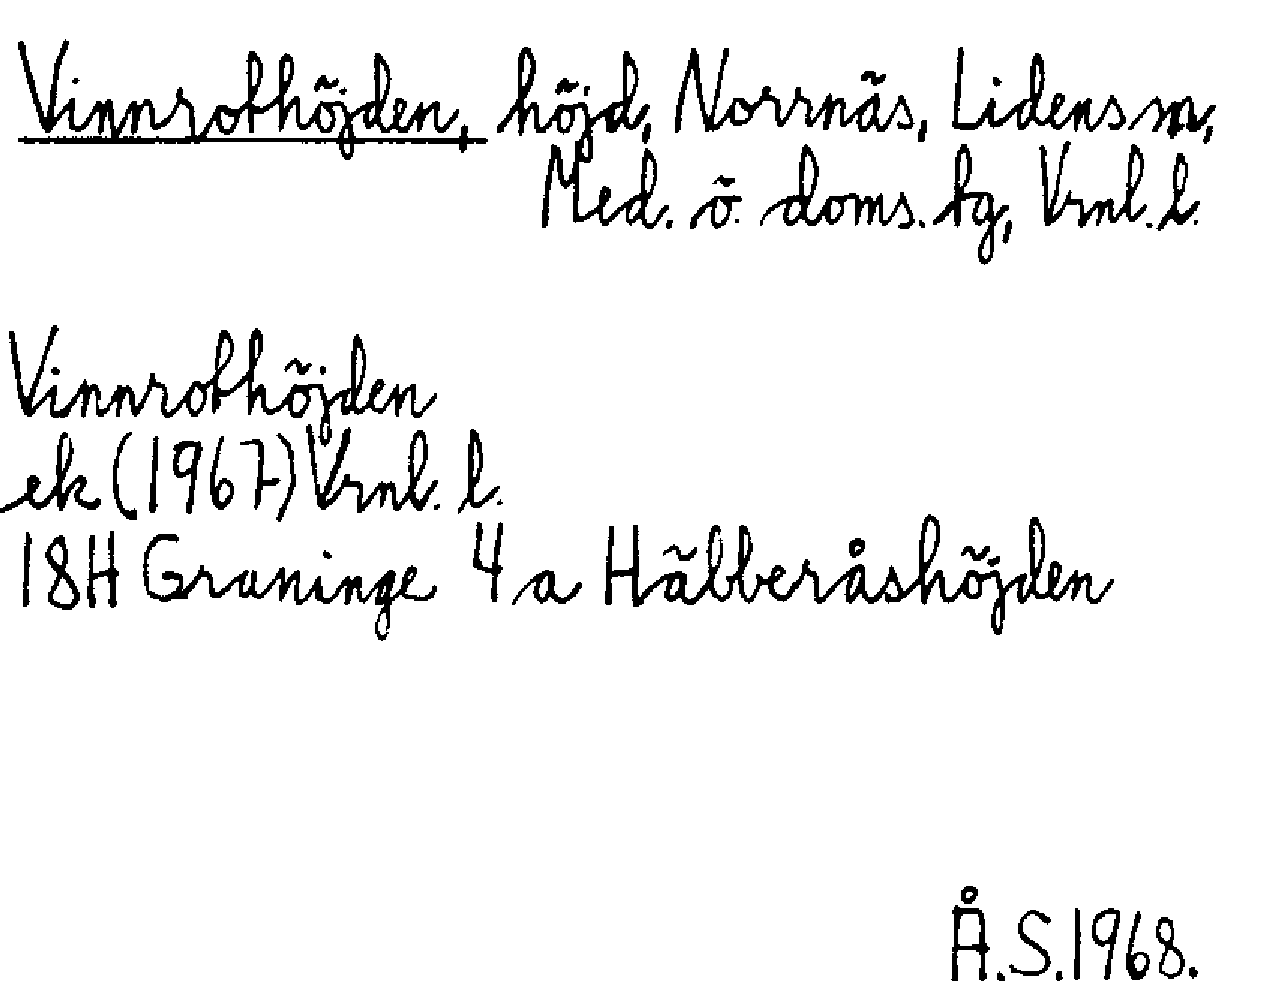 Vinnrothöjden, höjd, Norrnäs, Lidens sn,
Med. ö. doms. tg, Vrnl. l.
Vinnrothöjden
ek (1967) Vrnl. l.
18H Graninge 4a Häbberåshöjden
Å.S. 1968.